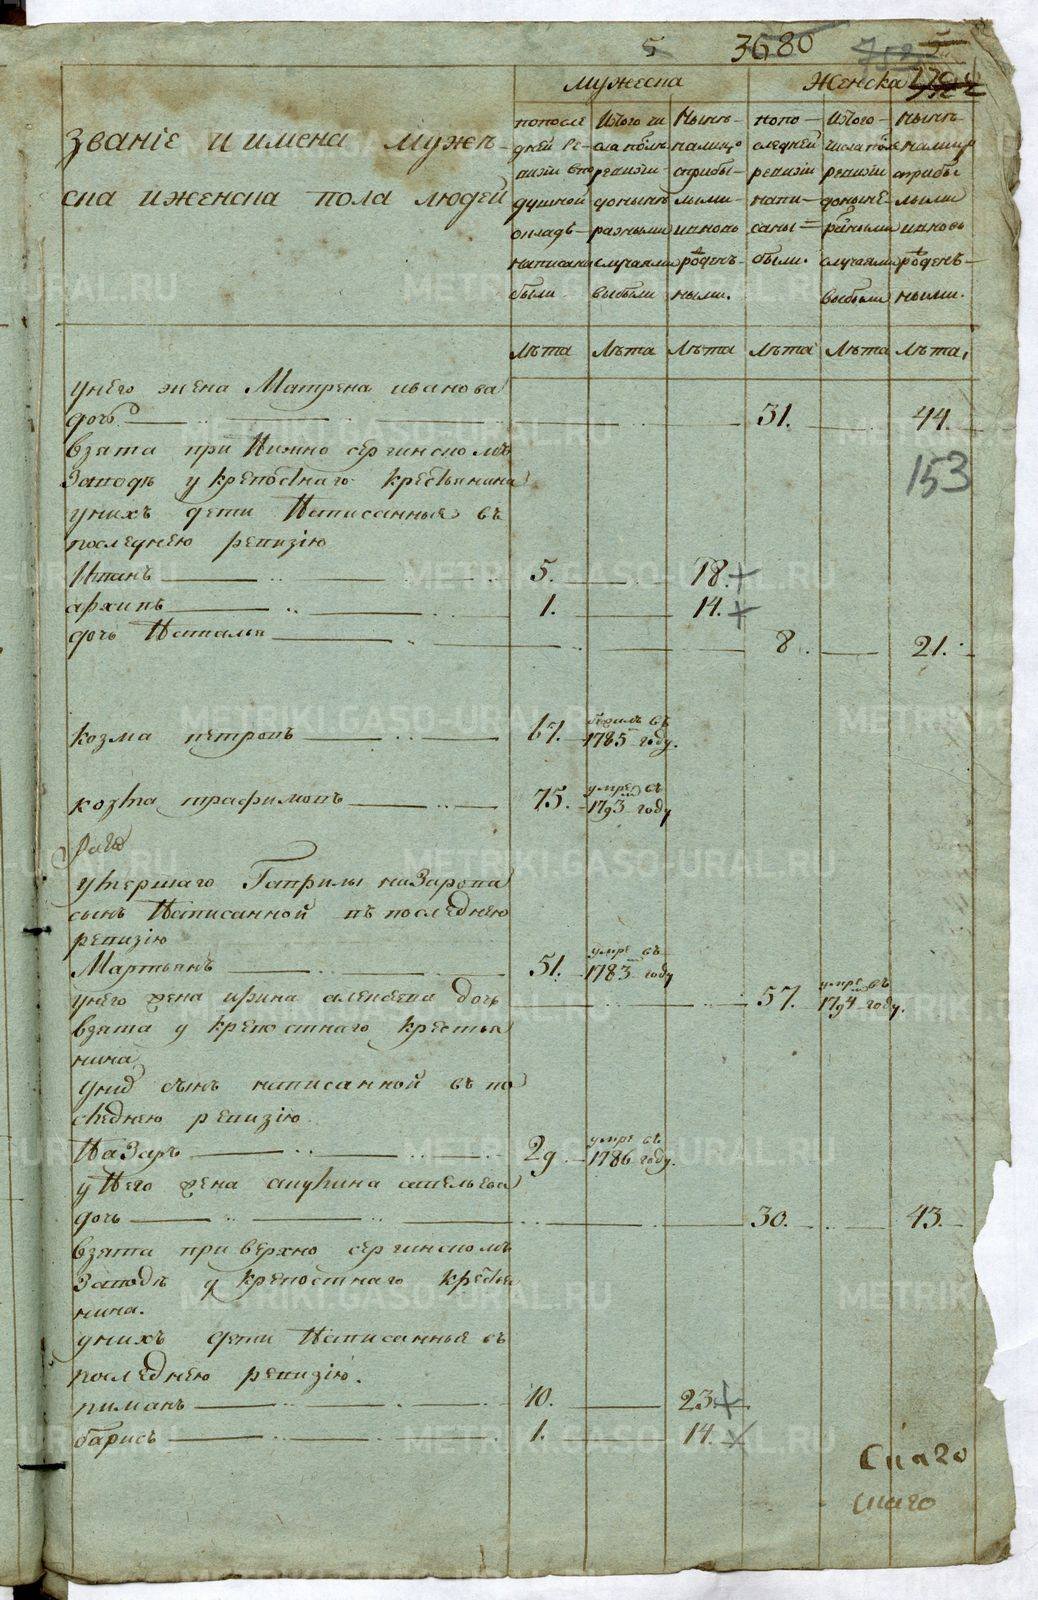 5 3680 752
мужеска Женска
Званіе и имена муже-
ска и женска пола людей
попосле
дней Ре-
визіи въпо
душной
окладъ
написаны
были
Ист ого чи
сла посль
ревизіи
до нынѣ
разными
случаями
выбыли
Нынѣ
налицо
сприбы-
лыми
ивновь
рожден-
ными.
попо-
следней
ревизіи
напи-
саны
были.
Ист ого
числа посль
ревизіи
до нынѣ
разными
случаями
выбыли
Нынѣ
налицо
сприбы
лыми
ивновь
рожден-
ными.
Лѣта Лѣта Лѣта Лѣта Лѣта Лѣта
унего жена Матрена иванова
дочь 31. 44.
взята при Нижно сергинскомъ 153
Заводѣ у крепостнаго крестьянина
унихъ дети Написанныя въ
последнею ревизію
Иванъ 5. 18.
архипъ 1. 14.
дочь Наталья 8. 21.
козма петровъ 67. въ 1785 году.
козма трафимовъ 75. умре въ 1793 году
умершаго Гаврилы назарова
сынъ Написанной въ последнею
ревизію
Мартьянъ 51. умре въ 1783 году
унего жена ирина алексеева дочь 57. умре въ 1794 году.
взята у крепостнаго крестья
нина
унихъ сынъ написанной въ по
следнею ревизію
Назаръ 29 умре въ 1786 году.
у Него жена акулина савельева
дочь 30. 43.
взята при верхно сергинскомъ
Заводѣ у крепостнаго крестья
нина.
унихъ дети Написанныя въ
последнею ревизію.
пиманъ 10. 23.
барисъ 1. 14.
METRIKI.GASO-URAL.RU